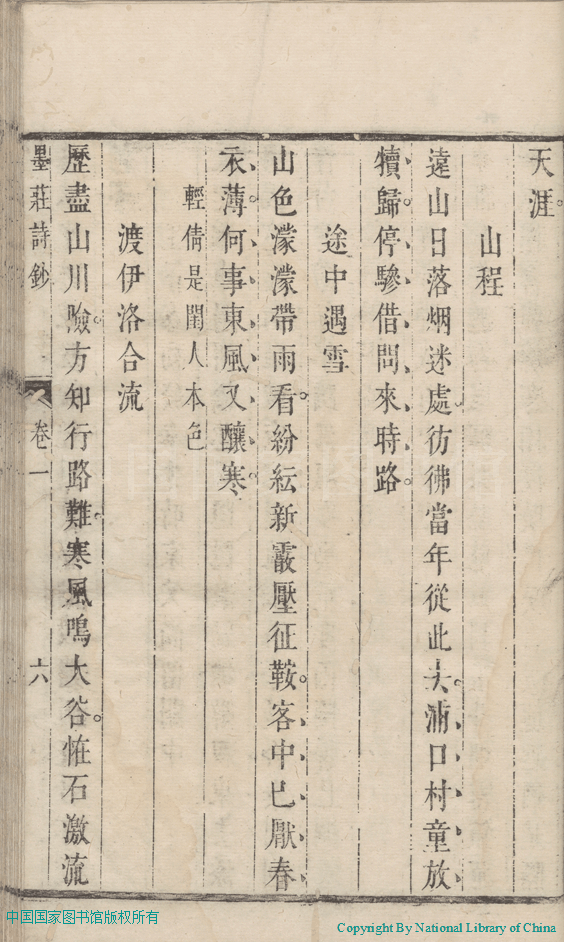 天涯
山程
遠山日落烟迷處彷彿當年從此去浦口村童放
犢歸停驂借問來時路
途中遇雪
山色濛濛帶雨看紛紜新霰壓征鞍客中已厭春
衣薄何事東風又釀寒
輕倩是閨人本色
渡伊洛合流
歷盡山川險方知行路難寒風鳴大谷恠石激流
墨莊詩鈔
卷一
六
中国国家图书馆版权所有
Copyright By National Library of China